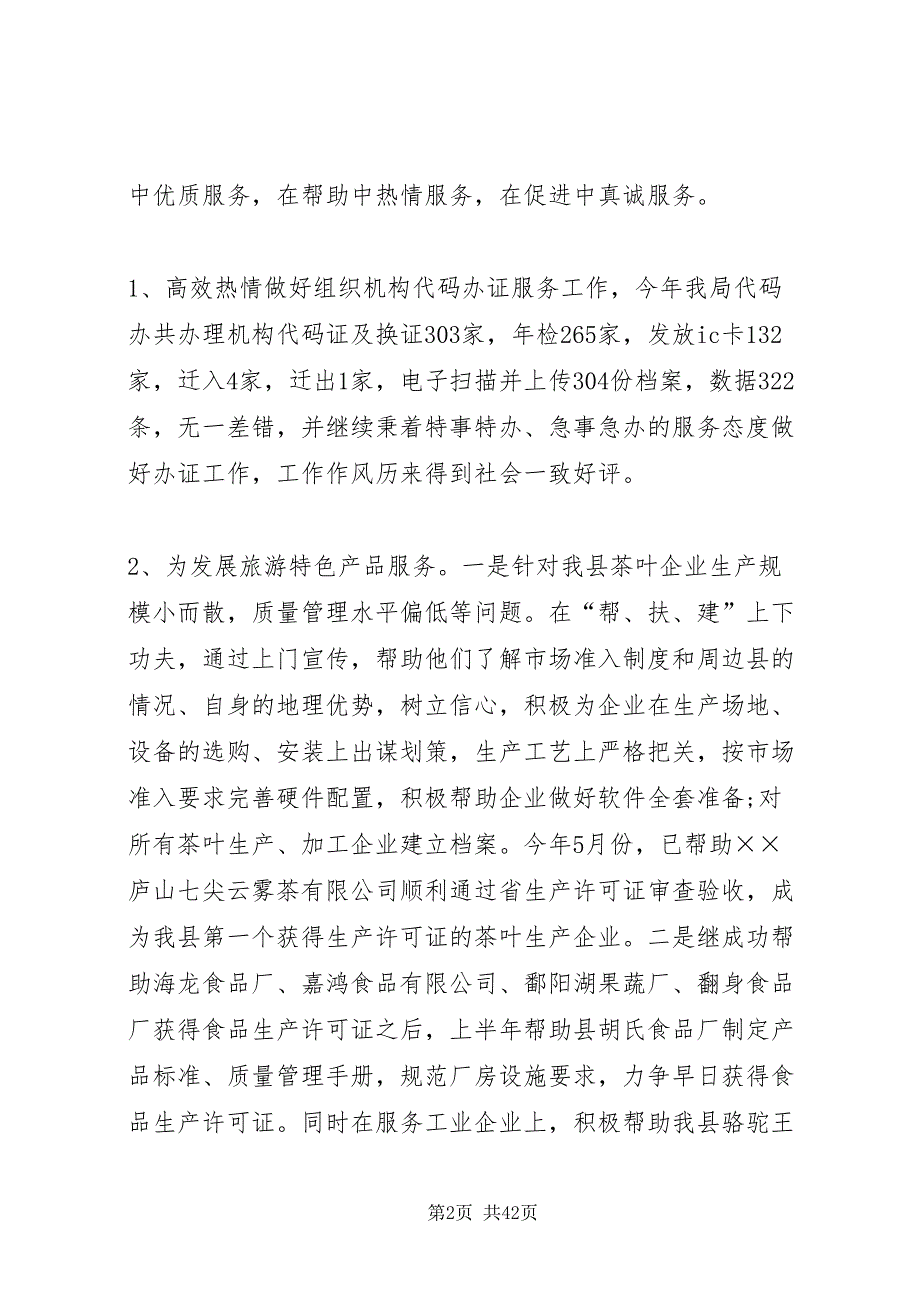 中优质服务，在帮助中热情服务，在促进中真诚服务。
1、高效热情做好组织机构代码办证服务工作，今年我局代码
办共办理机构代码证及换证303家，年检265家，发放ic卡132
家，迁入4家，迁出1家，电子扫描并上传304份档案，数据322
条，无一差错，并继续秉着特事特办、急事急办的服务态度做
好办证工作，工作作风历来得到社会一致好评。
2、为发展旅游特色产品服务。一是针对我县茶叶企业生产规
模小而散，质量管理水平偏低等问题。在“帮、扶、建”上下
功夫，通过上门宣传，帮助他们了解市场准入制度和周边县的
情况、自身的地理优势，树立信心，积极为企业在生产场地、
设备的选购、安装上出谋划策，生产工艺上严格把关，按市场
准入要求完善硬件配置，积极帮助企业做好软件全套准备;对
所有茶叶生产、加工企业建立档案。今年5月份，已帮助××
庐山七尖云雾茶有限公司顺利通过省生产许可证审查验收，成
为我县第一个获得生产许可证的茶叶生产企业。二是继成功帮
助海龙食品厂、嘉鸿食品有限公司、鄱阳湖果蔬厂、翻身食品
厂获得食品生产许可证之后，上半年帮助县胡氏食品厂制定产
品标准、质量管理手册，规范厂房设施要求，力争早日获得食
品生产许可证。同时在服务工业企业上，积极帮助我县骆驼王
第2页 共42页